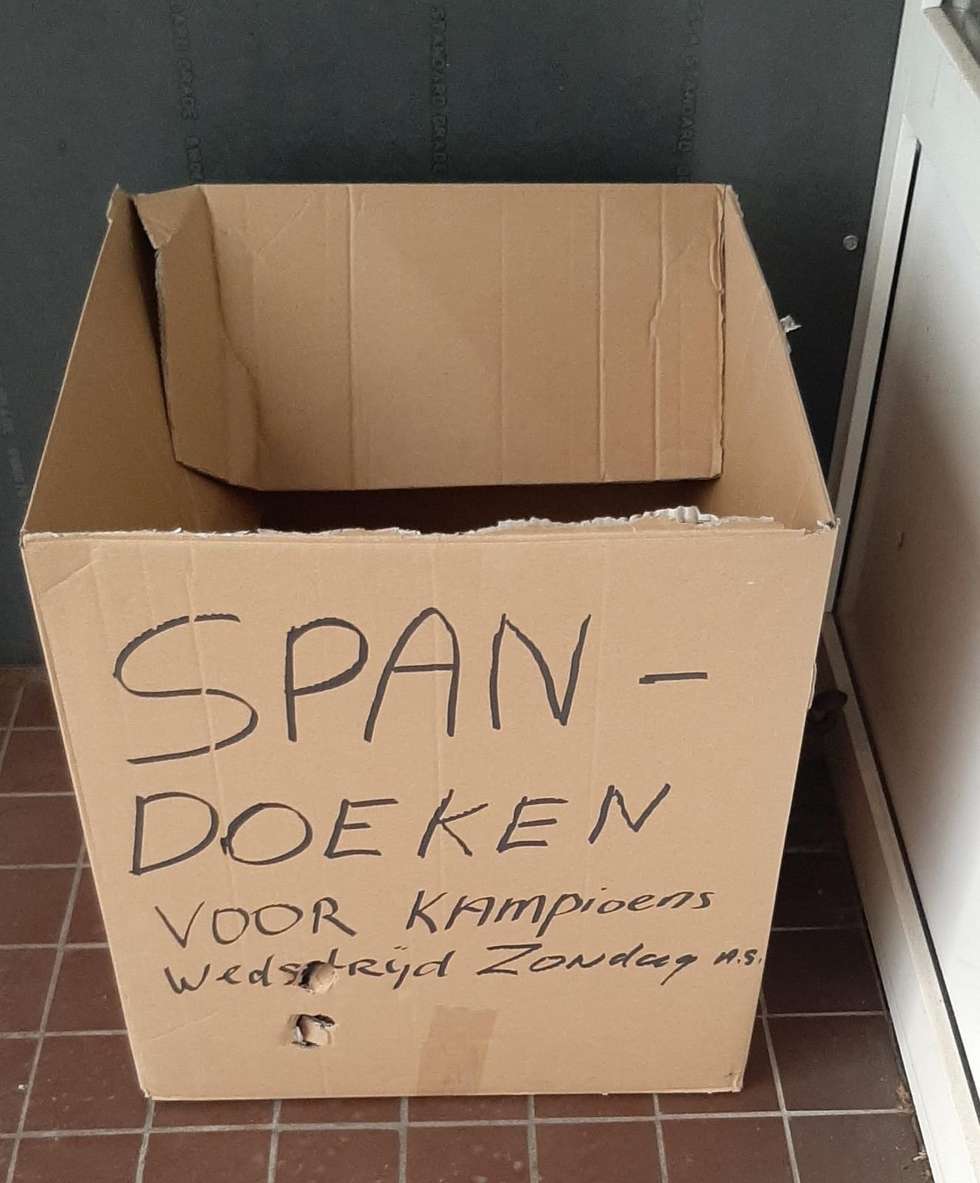 SPAN-
DOEKEN
VOOR KAmpioens
Wedstrijd Zondag a.s.